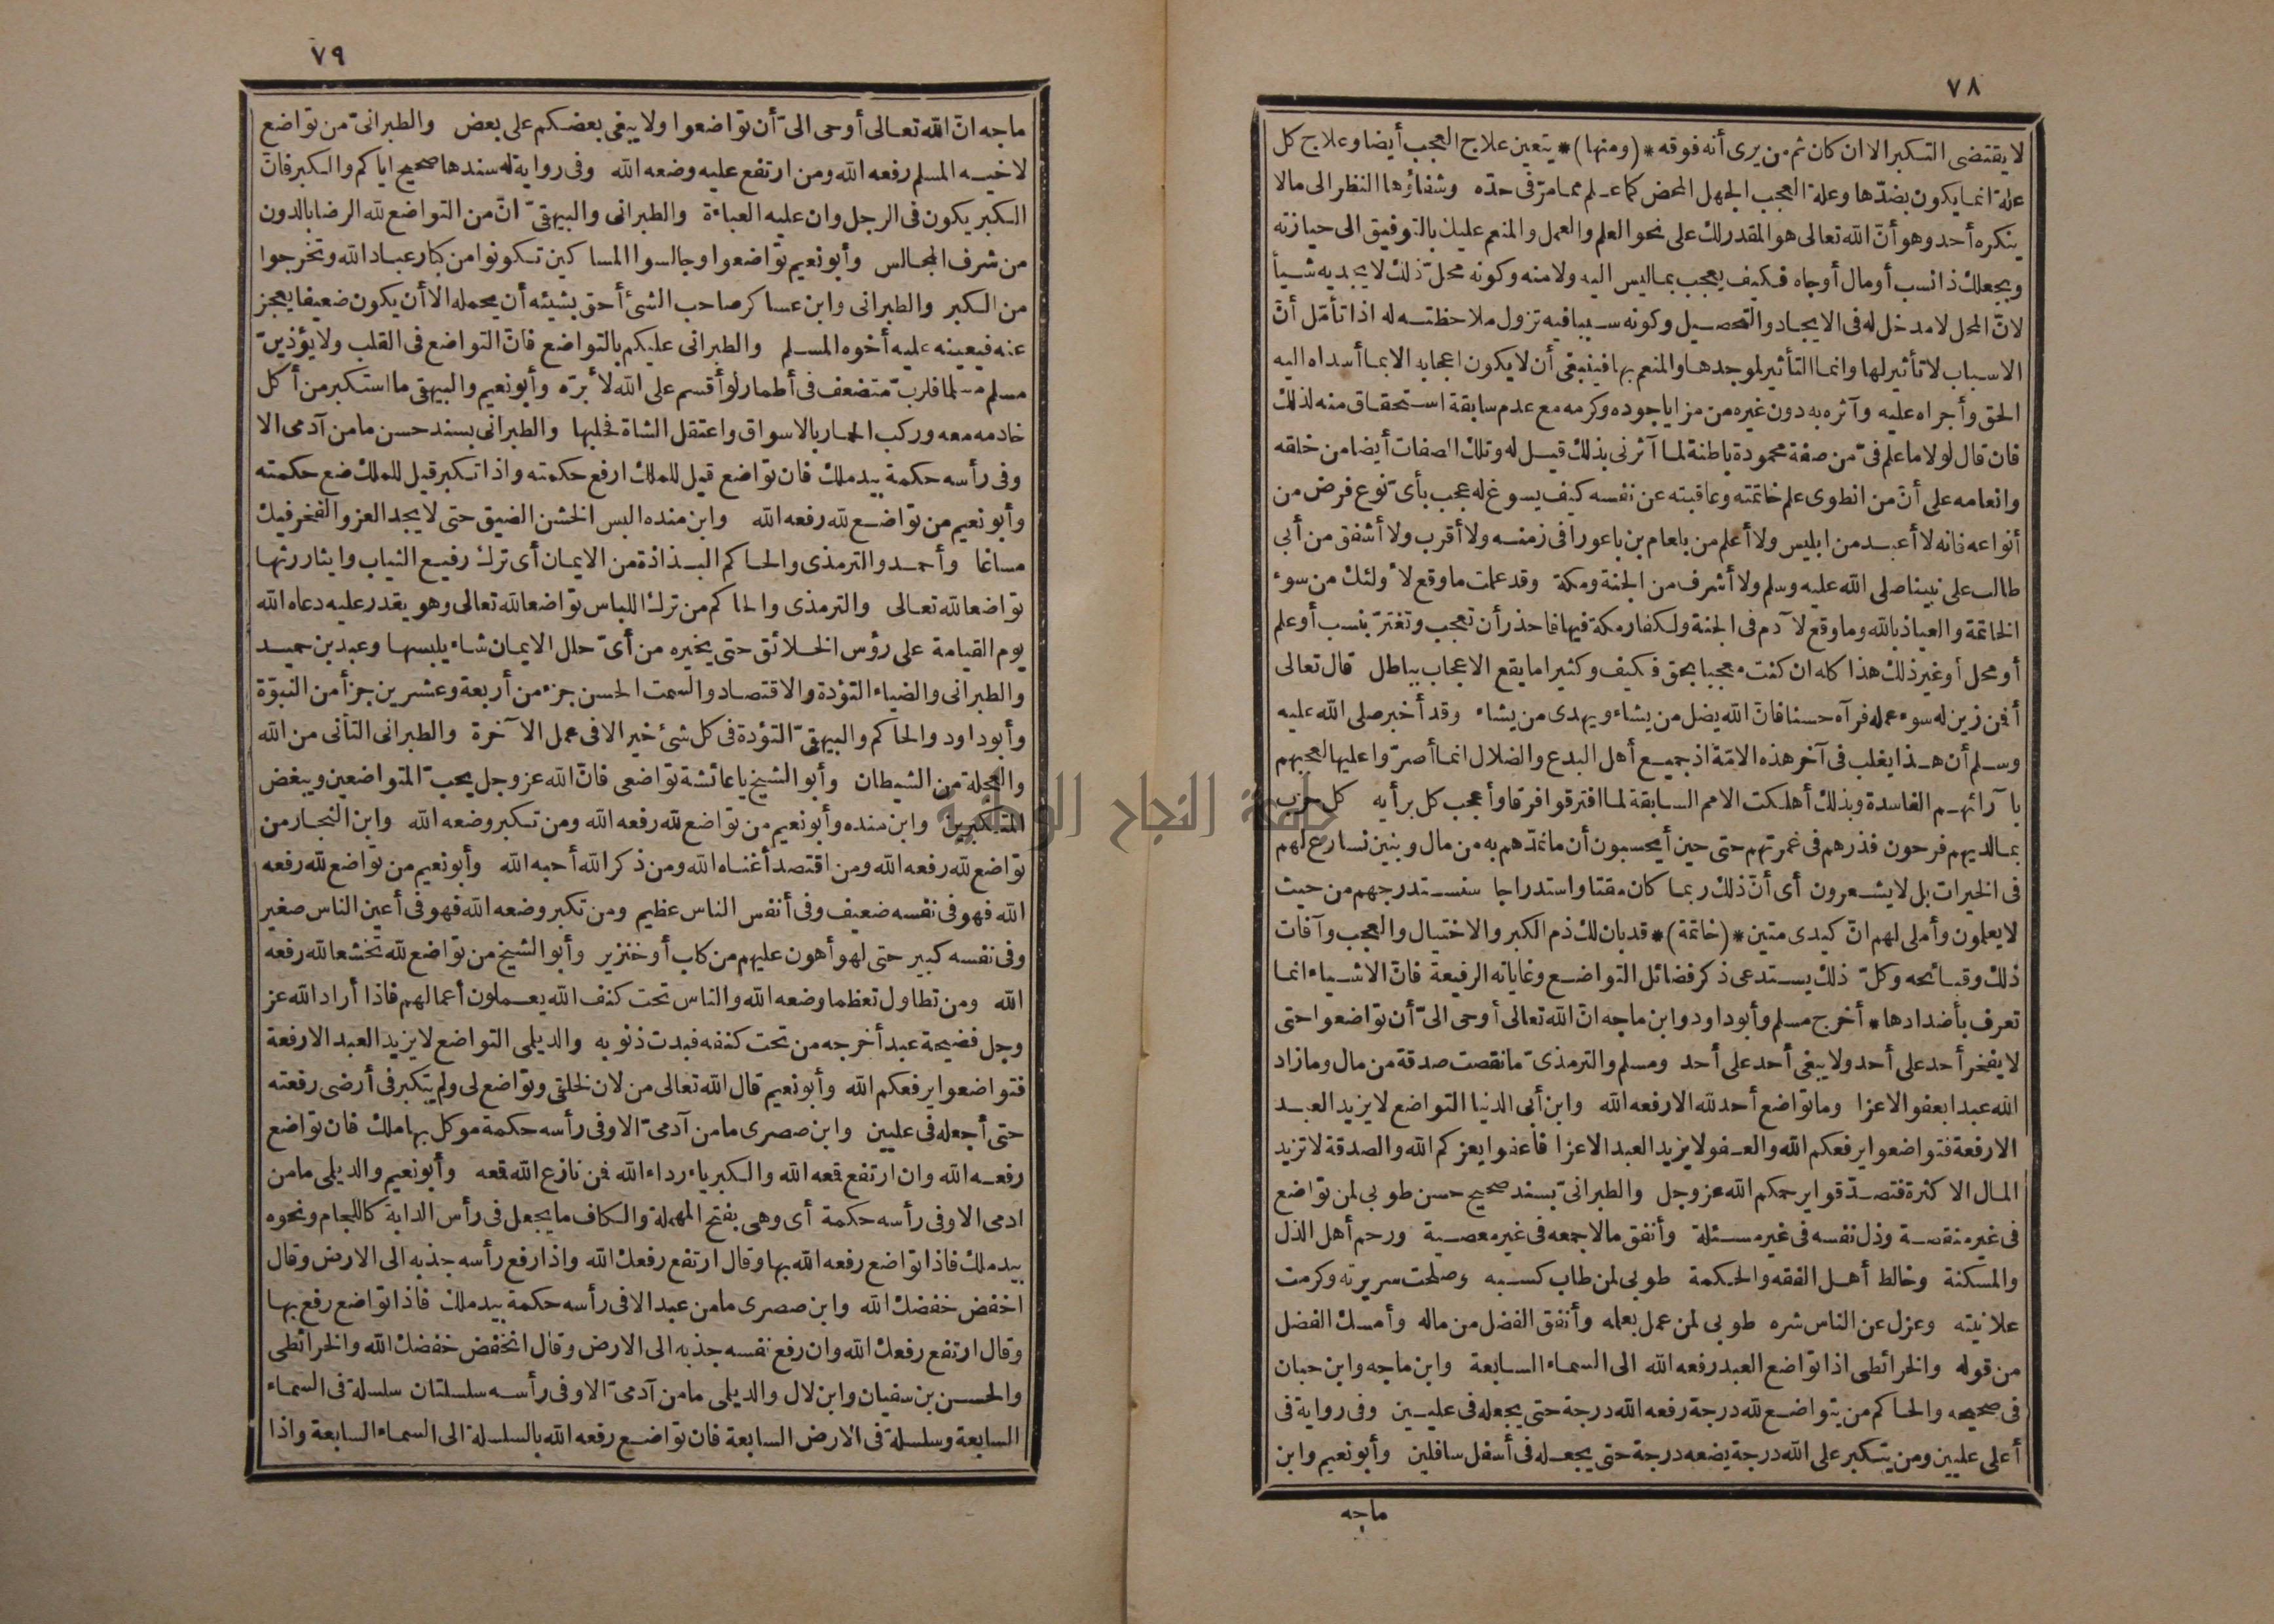 ٧٨
لا يقتضى التكبر الا ان كان ثم من يرى أنه فوقه *(ومنها)* يتعين علاج العجب أيضا وعلاج كل
علة انما يكون بضدّها وعلة العجب الجهل المحض كما علم مما مرّ فى حدّه وشفاؤها النظر الى مالا
ينكره أحد وهو أنّ الله تعالى هو المقدر لك على نحو العلم والعمل والمنعم عليك بالتوفيق الى حيازته
ويجعلك ذا نسب أو مال أو جاه فكيف يعجب بما ليس اليه ولا منه وكونه محلّ ذلك لا يجديه شيأ
لانّ المحل لا مدخل له فى الايجاد والتحصيل وكونه سببا فيه تزول ملاحظته له اذا تأمّل أنّ
الاسباب لا تأثير لها وانما التأثير لموجدها والمنعم بها فينبغى أن لا يكون اعجابه الا بما أسداه اليه
الحق وأجراه عليه وآثره به دون غيره من مزايا جوده وكرمه مع عدم سابقة استحقاق منه لذلك
فان قال لولا ما علم فىّ من صفة محمودة باطنة لما آثرنى بذلك قيل له وتلك الصفات أيضا من خلقه
وانعامه على أنّ من انطوى علم خاتمته وعاقبته عن نفسه كيف يسوغ له عجب بأىّ نوع فرض من
أنواعه فانه لا أعبد من ابليس ولا أعلم من بلعام بن باعورا فى زمنه ولا أقرب ولا أشفق من أبى
طالب على نبينا صلى الله عليه وسلم ولا أشرف من الجنة ومكة وقد علمت ما وقع لأولئك من سوء
الخاتمة والعياذ بالله وما وقع لآدم فى الجنة ولكفار مكة فيها فاحذر أن تعجب وتغترّ بنسب أو علم
أو محل أو غير ذلك هذا كله ان كنت معجبا بحق فكيف وكثيرا ما يقع الاعجاب بباطل قال تعالى
أفمن زين له سوء عمله فرآه حسنا فانّ الله يضل من يشاء ويهدى من يشاء وقد أخبر صلى الله عليه
وسلم أن هذا يغلب فى آخر هذه الامّة اذ جميع أهل البدع والضلال انما أصرّوا عليها لعجبهم
بآرائهم الفاسدة وبذلك أهلكت الامم السابقة لما افترقوا فرقا وأعجب كل برأيه كل حزب
بما لديهم فرحون فذرهم فى غمرتهم حتى حين أيحسبون أن ما نمدّهم به من مال وبنين نسارع لهم
فى الخيرات بل لا يشعرون أى أنّ ذلك ربما كان مقتا واستدراجا سنستدرجهم من حيث
لا يعلمون وأملى لهم انّ كيدى متين *(خاتمة)* قد بان لك ذم الكبر والاختيال والعجب وآفات
ذلك وقبائحه وكلّ ذلك يستدعى ذكر فضائل التواضع وغاياته الرفيعة فانّ الاشياء انما
تعرف بأضدادها* أخرج مسلم وأبو داود وابن ماجه انّ الله تعالى أوحى الىّ أن تواضعوا حتى
لا يفخر أحد على أحد ولا يبغى أحد على أحد ومسلم والترمذىّ ما نقصت صدقة من مال وما زاد
الله عبدا بعفو الا عزا وما تواضع أحد لله الا رفعه الله وابن أبى الدنيا التواضع لا يزيد العبد
الا رفعة فتواضعوا يرفعكم الله والعفو لا يزيد العبد الا عزا فاعفوا يعزكم الله والصدقة لا تزيد
المال الا كثرة فتصدّقوا يرحمكم الله عز وجل والطبرانىّ بسند صحيح حسن طوبى لمن تواضع
فى غير منقصة وذل نفسه فى غير مسئلة وأنفق مالا جمعه فى غير معصية ورحم أهل الذل
والمسكنة وخالط أهل الفقه والحكمة طوبى لمن طاب كسبه وصلحت سريرته وكرمت
علانيته وعزل عن الناس شره طوبى لمن عمل بعلمه وأنفق الفضل من ماله وأمسك الفضل
من قوله والخرائطى اذا تواضع العبد رفعه الله الى السماء السابعة وابن ماجه وابن حبان
فى صحيحه والحاكم من يتواضع لله درجة رفعه الله درجة حتى يجعله فى عليين وفى رواية فى
أعلى عليين ومن يتكبر على الله درجة يضعه درجة حتى يجعله فى أسفل سافلين وأبو نعيم وابن
ماجه
٧٩
ماجه انّ الله تعالى أوحى الىّ أن تواضعوا ولا يبغى بعضكم على بعض والطبرانىّ من تواضع
لاخيه المسلم رفعه الله ومن ارتفع عليه وضعه الله وفى رواية له سندها صحيح اياكم والكبر فانّ
الكبر يكون فى الرجل وان عليه العباءة والطبرانى والبيهقىّ انّ من التواضع لله الرضا بالدون
من شرف المجالس وأبو نعيم تواضعوا وجالسوا المساكين تكونوا من كبار عباد الله وتخرجوا
من الكبر والطبرانى وابن عساكر صاحب الشئ أحق بشيئه أن يحمله الا أن يكون ضعيفا يعجز
عنه فيعينه عليه أخوه المسلم والطبرانى عليكم بالتواضع فانّ التواضع فى القلب ولا يؤذينّ
مسلم مسلما فلربّ متضعف فى أطمار لو أقسم على الله لأبرّه وأبو نعيم والبيهقى ما استكبر من أكل
خادمه معه وركب الحمار بالاسواق واعتقل الشاة فحلبها والطبرانى بسند حسن ما من آدمى الا
وفى رأسه حكمة بيد ملك فان تواضع قيل للملك ارفع حكمته واذا تكبر قيل للملك ضع حكمته
وأبو نعيم من تواضع لله رفعه الله وابن منده البس الخشن الضيق حتى لا يجد العز والفخر فيك
مساغا وأحمد والترمذى والحاكم البذاذة من الايمان أى ترك رفيع الثياب وايثار رثها
تواضعا لله تعالى والترمذى والحاكم من ترك اللباس تواضعا لله تعالى وهو يقدر عليه دعاه الله
يوم القيامة على رؤس الخلائق حتى يخيره من أىّ حلل الايمان شاء يلبسها وعبد بن حميد
والطبرانى والضياء التؤدة والاقتصاد والسمت الحسن جزء من أربعة وعشرين جزأ من النبوّة
وأبو داود والحاكم والبيهقىّ التؤدة فى كل شئ خير الا فى عمل الآخرة والطبرانى التأنى من الله
والعجلة من الشيطان وأبو الشيخ يا عائشة تواضعى فانّ الله عز وجل يحبّ المتواضعين ويبغض
المتكبرين وابن منده وأبو نعيم من تواضع لله رفعه الله ومن تكبر وضعه الله وابن النجار من
تواضع لله رفعه الله ومن اقتصد أغناه الله ومن ذكر الله أحبه الله وأبو نعيم من تواضع لله رفعه
الله فهو فى نفسه ضعيف وفى أنفس الناس عظيم ومن تكبر وضعه الله فهو فى أعين الناس صغير
وفى نفسه كبير حتى لهو أهون عليهم من كلب أو خنزير وأبو الشيخ من تواضع لله تخشعا لله رفعه
الله ومن تطاول تعظما وضعه الله والناس تحت كنف الله يعملون أعمالهم فاذا أراد الله عز
وجل فضيحة عبد أخرجه من تحت كنفه فبدت ذنوبه والديلمى التواضع لا يزيد العبد الا رفعة
فتواضعوا يرفعكم الله وأبو نعيم قال الله تعالى من لان لخلقى وتواضع لى ولم يتكبر فى أرضى رفعته
حتى أجعله فى عليين وابن صصرى ما من آدمىّ الا وفى رأسه حكمة موكل بها ملك فان تواضع
رفعه الله وان ارتفع قمعه الله والكبرياء رداء الله فمن نازع الله قمعه وأبو نعيم والديلمى ما من
ادمى الا وفى رأسه حكمة أى وهى بفتح المهملة والكاف ما يجعل فى رأس الدابة كاللجام ونحوه
بيد ملك فاذا تواضع رفعه الله بها وقال ارتفع رفعك الله واذا رفع رأسه جذبه الى الارض وقال
اخفض خفضك الله وابن صصرى ما من عبد الا فى رأسه حكمة بيد ملك فاذا تواضع رفع بها
وقال ارتفع رفعك الله وان رفع نفسه جذبه الى الارض وقال انخفض خفضك الله والخرائطى
والحسن بن سفيان وابن لال والديلمى ما من آدمىّ الا وفى رأسه سلسلتان سلسلة فى السماء
السابعة وسلسلة فى الارض السابعة فان تواضع رفعه الله بالسلسلة الى السماء السابعة واذا